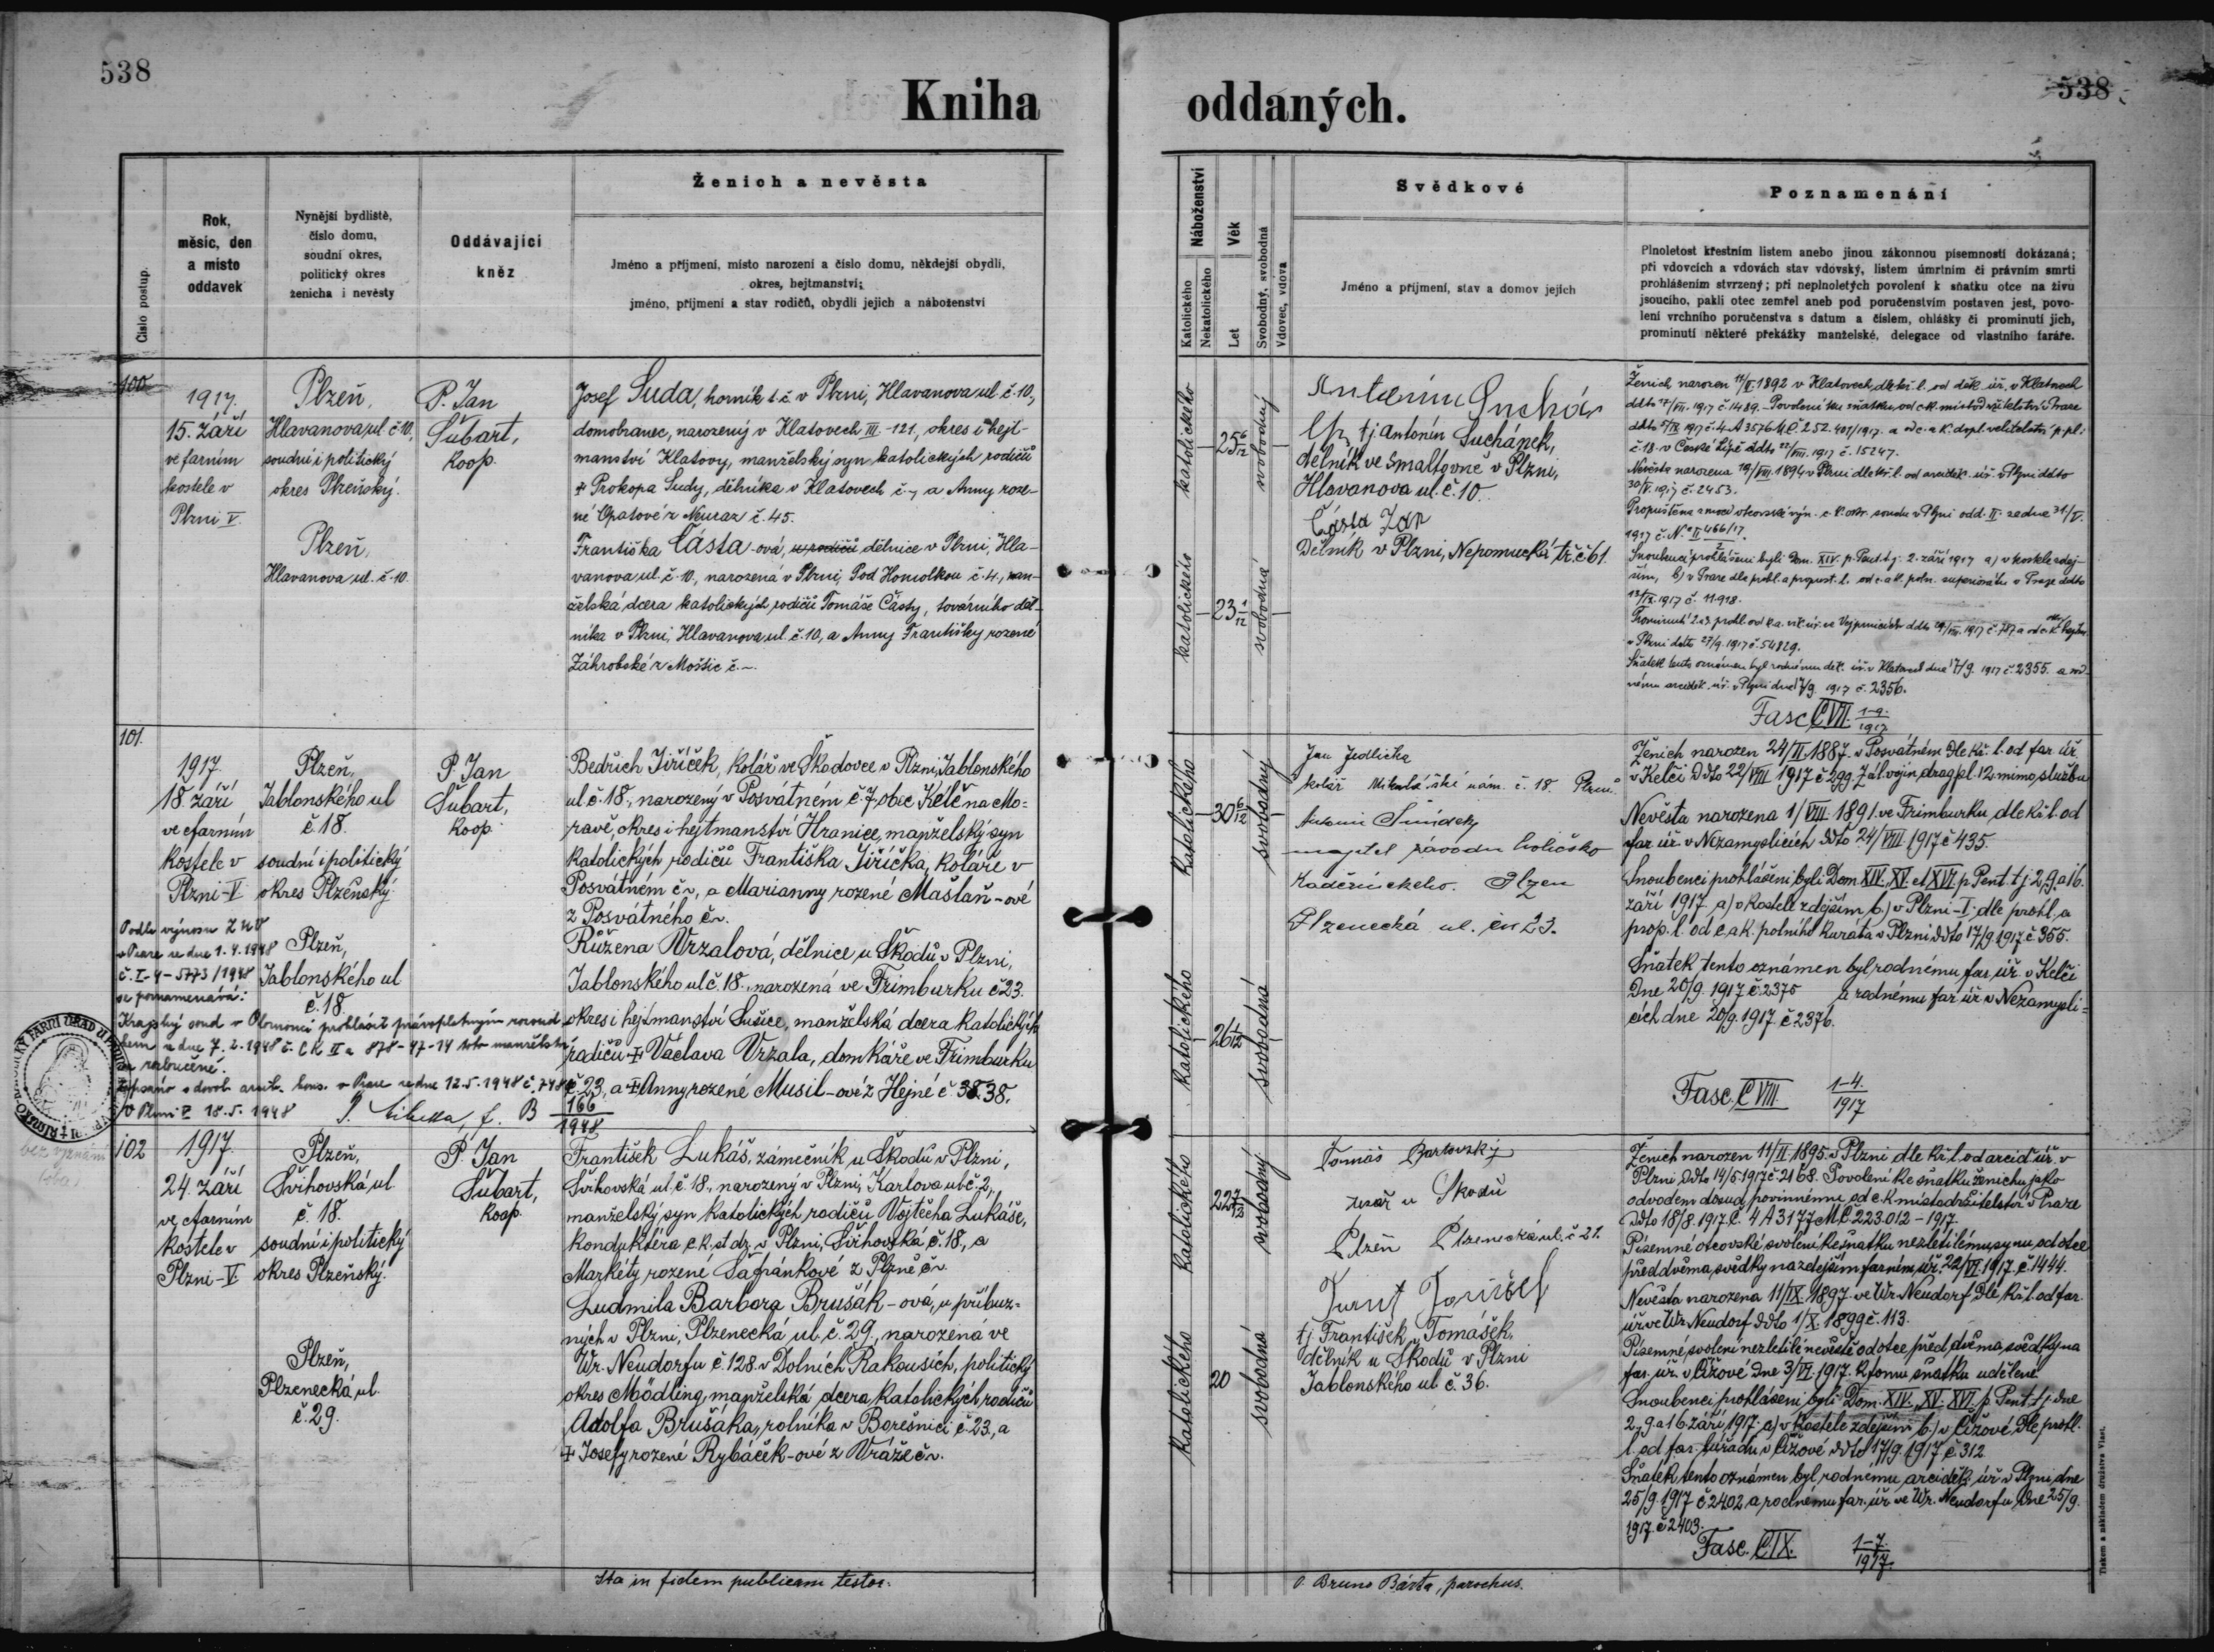 538
Kniha
Číslo postup.
Rok,
měsíc, den
a místo
oddavek
Nynější bydliště,
číslo domu,
soudní okres,
politický okres
ženicha i nevěsty
Oddávající
kněz
Ženich a nevěsta
Jméno a příjmení, místo narození a číslo domu, někdejší obydlí,
okres, hejtmanství;
jméno, příjmení a stav rodičů, obydlí jejich a náboženství
100.
1917.
15. září
ve farním
kostele v
Plzni V.
Plzeň,
Hlavanova ul. č 10,
soudní i politický
okres Plzeňský.
Plzeň,
Hlavanova ul. č. 10.
P. Jan
Šubart,
koop.
Josef Suda, horník t. č. v Plzni, Hlavanova ul. č. 10,
domobranec, narozený v Klatovech III - 121, okres i hejt-
manství Klatovy, manželský syn katolických rodičů
+ Prokopa Sudy, dělníka v Klatovech č. -, a Anny roze-
né Opatové z Neuraz č. 45.
Františka Částa-ová, u rodičů dělnice v Plzni, Hla-
vanova ul. č. 10, narozená v Plzni, Pod Homolkou č. 4., man-
želská dcera katolických rodičů Tomáše Částy, továrního děl-
níka v Plzni, Hlavanova ul. č. 10, a Anny Františky rozené
Záhrobské z Moštic č. -.
101.
1917.
18 září
ve farním
kostele v
Plzni-V
Plzeň,
Jablonského ul
č. 18.
soudní i politický
okres Plzeňský.
Plzeň,
Jablonského ul
č. 18.
P. Jan
Šubart,
koop.
Bedřich Jiříček, kolář ve Škodovce v Plzni, Jablonského
ul. č. 18., narozený v Posvátném č. 7, obec Kelč na Mo-
ravě, okres i hejtmanství Hranice, manželský syn
katolických rodičů Františka Jiříčka, koláře v
Posvátném č -, a Marianny rozené Maštaň-ové
z Posvátného č -.
Růžena Vrzalová, dělnice u Škodů v Plzni,
Jablonského ul č. 18., narozená ve Frimburku č 23.
okres i hejtmanství Sušice, manželská dcera katolických
rodičů + Václava Vrzala, domkáře ve Frimburku
č 23, a + Anny rozené Musil-ové z Hejné č 38. 38.
Podle výnosu ZNV
v Praze ze dne 1. 4. 1948
č. I-4-5773/1948
se poznamenává:
Krajský soud v Olomouci prohlásil právoplatným rozsud-
kem ze dne 7. 2. 1948 č. Ck II a 878-47-14 toto manželství
za rozloučené.
Zapsáno s dovol. arcib. kons. v Praze ze dne 12. 5. 1948 č. 7481
V Plzni V 18. 5. 1948
B 166
1948
102
1917.
24. září
ve farním
kostele v
Plzni-V
Plzeň,
Švihovská ul
č. 18.
soudní i politický
okres Plzeňský.
Plzeň,
Plzenecká ul.
č. 29.
P. Jan
Šubart,
koop.
František Lukáš, zámečník u Škodů v Plzni,
Švihovská ul. č. 18., narozený v Plzni, Karlova ul. č. 2,
manželský syn katolických rodičů Vojtěcha Lukáše,
konduktéra c. k. st. dr. v Plzni, Švihovská č. 18, a
Markéty rozené Šafránkové z Plzně č -.
Ludmila Barbora Brušák-ová, u příbuz-
ných v Plzni, Plzenecká ul. č. 29., narozená ve
Wr. Neudorfu č. 128 v Dolních Rakousích, politický
okres Mödling, manželská dcera katolických rodičů
Adolfa Brušáka, rolníka v Borešnici č. 23, a
+ Josefy rozené Rybáček-ové z Vráže č -.
Ita in fidem publicam testor:
oddaných.
538
Náboženství
Katolického
Nekatolického
Věk
Let
Svobodný, svobodná
Vdovec, vdova
Svědkové
Jméno a příjmení, stav a domov jejich
Poznamenání
Plnoletost křestním listem anebo jinou zákonnou písemností dokázaná;
při vdovcích a vdovách stav vdovský, listem úmrtním či právním smrti
prohlášením stvrzený; při neplnoletých povolení k sňatku otce na živu
jsoucího, pakli otec zemřel aneb pod poručenstvím postaven jest, povo-
lení vrchního poručenstva s datum a číslem, ohlášky či prominutí jich,
prominutí některé překážky manželské, delegace od vlastního faráře.
katolického
25 6/12
svobodný
katolického
23 1/12
svobodná
tj Antonín Suchánek,
dělník ve smaltovně v Plzni,
Hlavanova ul. č. 10.
Částa Jan
Dělník v Plzni, Nepomucká tř. č 61.
Ženich narozen 11/II. 1892 v Klatovech, dle kř. l. od děk. úř. v Klatovech
ddto 17/VII. 1917 č. 1489. - Povolení ku sňatku od c. k. místodržitelství v Praze
ddto 5/IX 1917 č. 4 A 3576 M.Č. 252.401/1917. a od c. a k. dopl. velitelství p. pl.
č. 18. v České Lípě ddto 22/VIII. 1917 č. 15247.
Nevěsta narozena 19/VIII. 1894 v Plzni dle kř. l. od arciděk. úř. v Plzni ddto
30/V. 1917 č. 2453.
Propuštěna z moci otcovské výn. c. k. okr. soudu v Plzni odd. II. ze dne 31/V.
1917 č. Nc II 466/17/2.
Snoubenci prohlášeni byli Dom. XIV. p. Pent. t. j. 2. září 1917 a) v kostele zdej-
ším, b) v Praze dle prohl. a propust. l. od c. a k. poln. superiorátu v Praze ddto
13/IX. 1917 č. 11.918.
Sňatek tento oznámen byl rodnému děk. úř. v Klatovech dne 17/9. 1917 č. 2355. a rod-
nému arciděk. úř. v Plzni dne 17/9. 1917 č. 2356.
Fasc. CVII. 1-9.
1917
Katolického
30 6/12
svobodný
Katolického
26 1/12
svobodná
Jan Jedlička
kolář Mikulášské nám. č. 18. Plzeň
majitel závodu holičsko
Kadeřnického. Plzen
Plzenecká ul. čís 23.
Ženich narozen 24/II 1887. v Posvátném dle kř. l. od far. úř.
v Kelči ddto 22/VIII 1917 č 299. Zál. vojín drag. pl. 12. mimo službu
Nevěsta narozena 1/VIII. 1891. ve Frimburku, dle kř. l. od
far. úř. v Nezamyslicích ddto 24/VIII 1917 č 435.
Snoubenci prohlášeni byli Dom XIV., XV. et XVI. p Pent. t j. 2, 9, a 16.
září 1917 a) v kostele zdejším b.) v Plzni-I. dle prohl. a
prop. l. od c. a k. polního kuráta v Plzni ddto 17/9. 1917 č 355.
Sňatek tento oznámen byl rodnému far. úř. v Kelči
Dne 20/9. 1917 č. 2375 a rodnému far. úř. v Nezamysli-
cích dne 20/9. 1917. č. 2376.
Fasc. CVIII. 1-4.
1917
Katolického
22 7/12
svobodný
Katolického
20
svobodná
Tomáš
u Škodů
Plzeň Plzenecká ul. č 21.
tj František Tomášek,
dělník u Škodů v Plzni
Jablonského ul. č. 36.
Ženich narozen 11/II. 1895. v Plzni dle kř. l. od arcid. úř. v
Plzni ddto 14/5. 1917 č. 2168. Povolení ke sňatku ženichu jako
odvodem dosud povinnému od c. k. místodržitelství v Praze
ddto 18/8. 1917. Č. 4 A 3177 M.Č 223.012-1917.
Písemné otcovské svolení ke sňatku nezletilému synu od otce
před dvěma svědky na zdejším farním úř. 22/VI. 1917. č. 1444.
Nevěsta narozena 11/IX. 1897. ve Wr. Neudorf, dle kř. l. od far.
úř. ve Wr. Neudorf ddto 1/X. 1899 č. 113.
Písemné svolení nezletilé nevěstě od otce před dvěma svědky na
far. úř. v Čížové dne 3/VI. 1917. k tomu sňatku udělené.
Snoubenci prohlášeni byli Dom. XIV., XV. XVI. p Pent. t. j. dne
2, 9 a 16 září 1917. a) v kostele zdejším b.) v Čížové dle prohl.
l. od far. úřadu v Čížové ddto 17/9. 1917. č 312
Sňatek tento oznámen byl rodnému arciděk. úř. v Plzni dne
25/9 1917 č 2402 a rodnému far. úř. ve Wr. Neudorfu dne 25/9.
1917. č 2403.
Fasc. CIX. 1-7.
1917.
P. Bruno Bárta, parochus.
Tiskem a nákladem družstva Vlast.